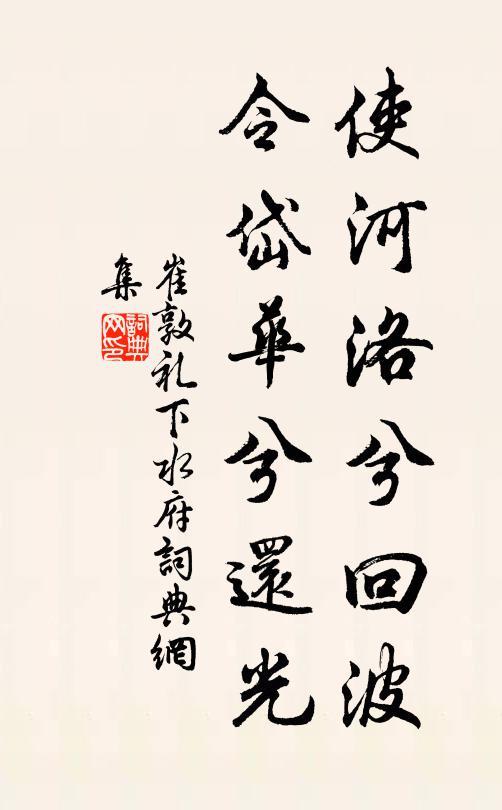 使河洛兮回波
令岱華兮還光
崔敦礼下水府詞典網
集
詞典網印